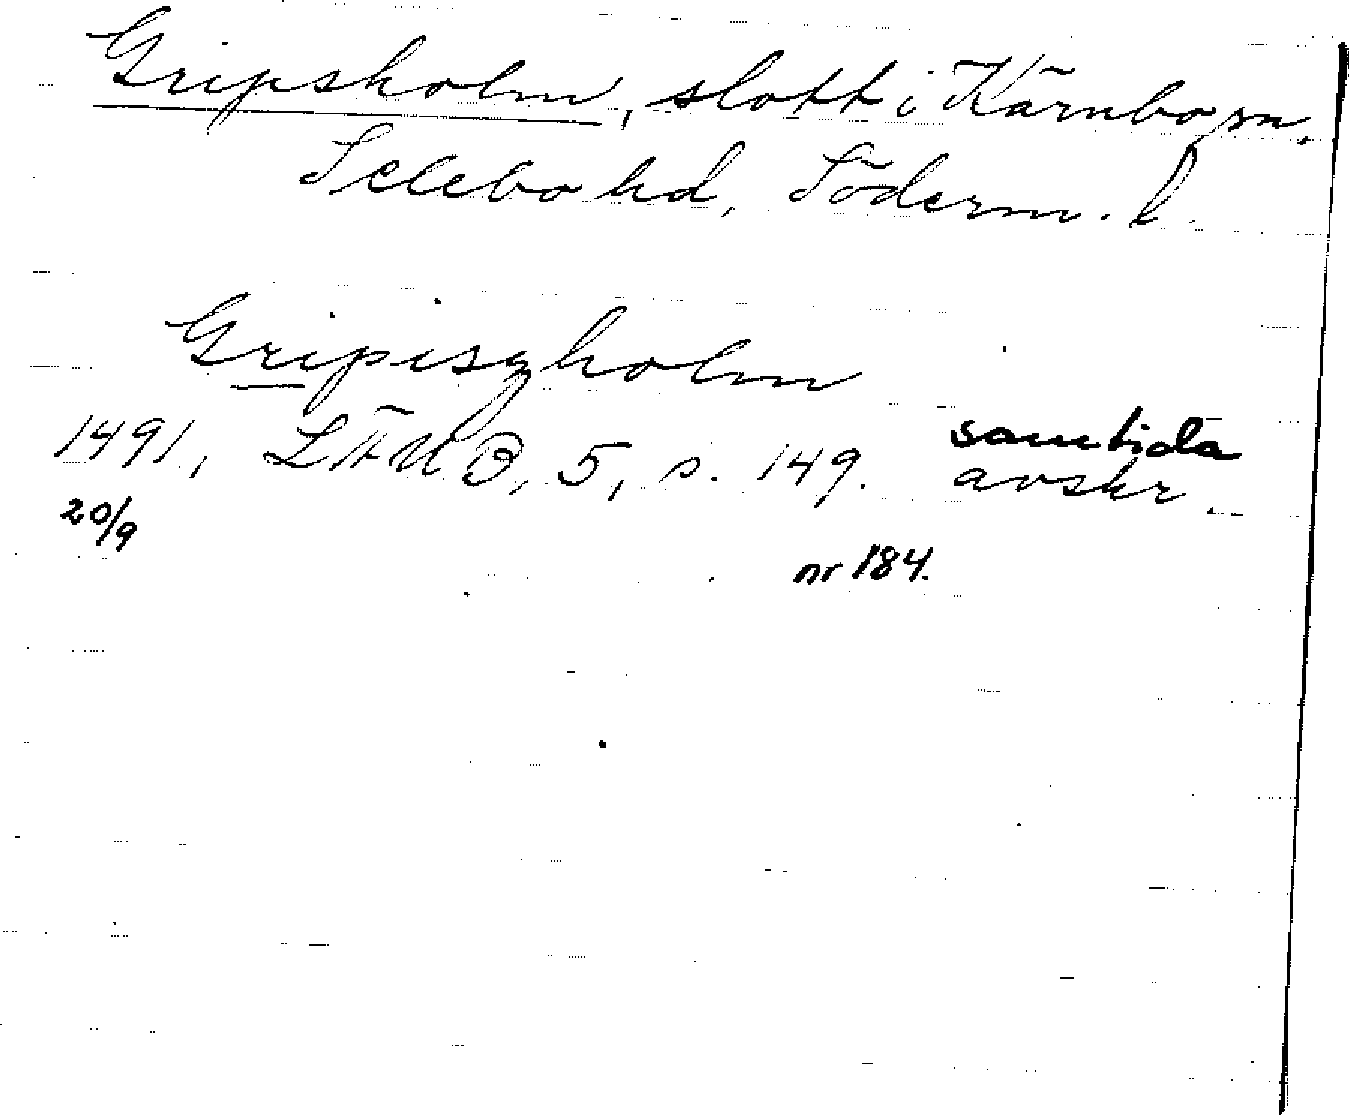 Gripsholm, slott i Kärnbo sn,
Selebo hd, Söderm. l.
Gripiszholm
1491, LFMB, 5, s. 149. samtida
20/9 avskr.
nr 184.